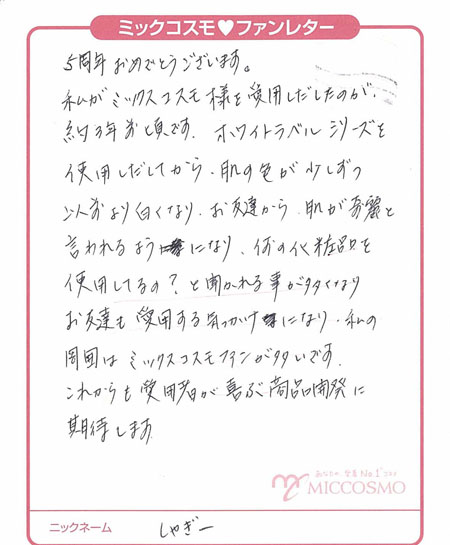 ミックコスモ♥ファンレター
5周年おめでとうございます。
私がミックスコスモ様を愛用しだしたのが、
約3年前頃です。ホワイトラベルシリーズを
使用しだしてから、肌の色が少しずつ
以前より白くなり、お友達から、肌が綺麗と
言われるようになり、何の化粧品を
使用してるの?と聞かれる事が多くなり
お友達も愛用する気っかけになり、私の
周囲はミックスコスモファンが多いです。
これからも愛用者が喜ぶ商品開発に
期待します。
あなたの 声を No.1
MICCOSMO
ニックネーム しゃぎー